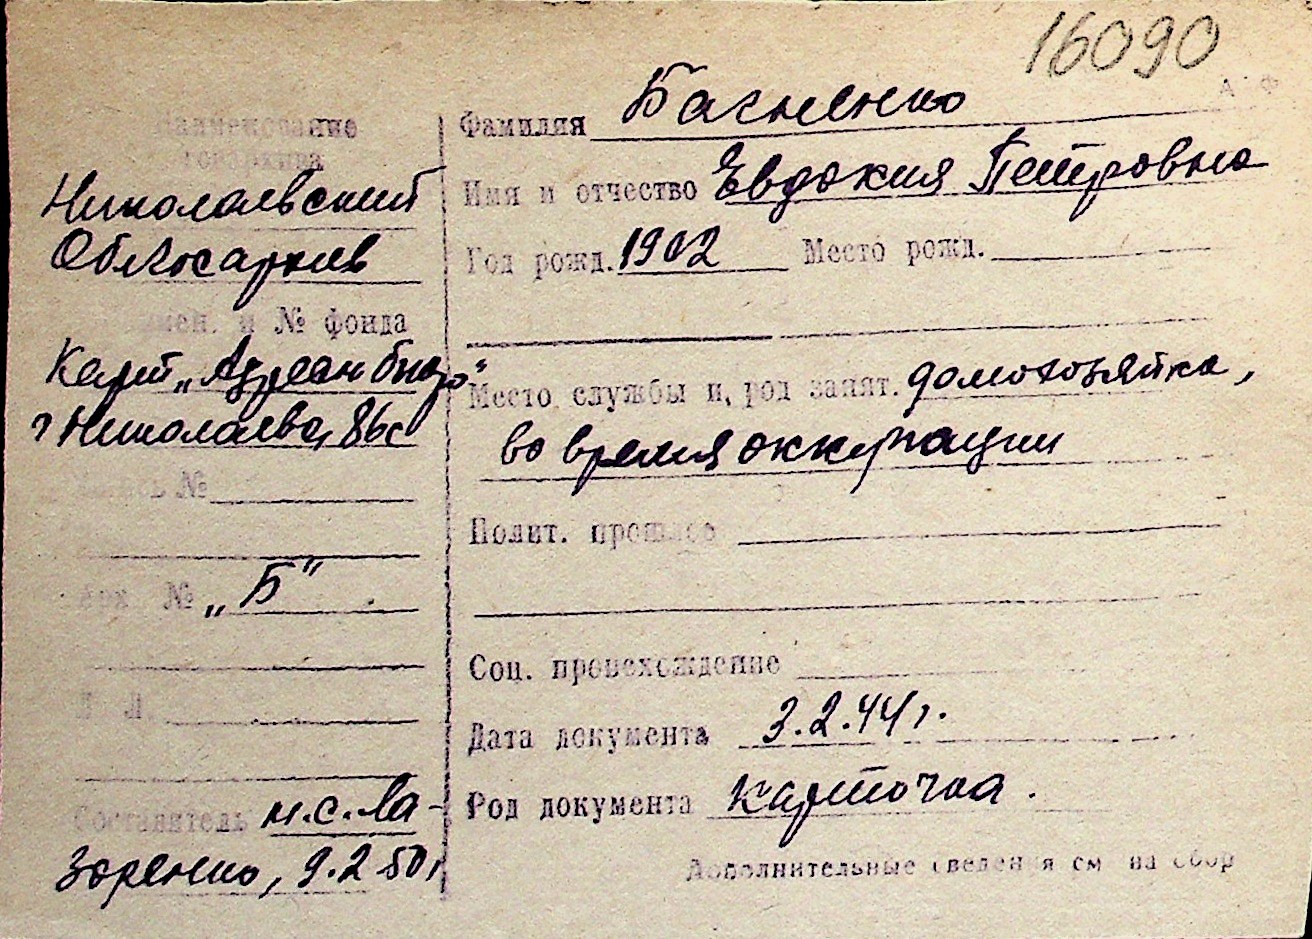 16090
А Ф
Наименование
госархива
Николаевский
Облгосархив
имен. и № фонда
Карт „Адресн бюро"
г Николаева, 86с
опись №
арх. № „Б"
Л Л.
Составитель м.с.Ла-
зоренко, 9.2 50г
Фамилия Багненко
Имя и отчество Евдокия Петровна
Год рожд. 1902 Место рожд.
Место службы и, род занят. домохозяйка,
во время оккупации
Полит. прошлое
Соц. происхождение
Дата документа 3.2.44г.
Род документа карточка.
Дополнительные сведения см на обор